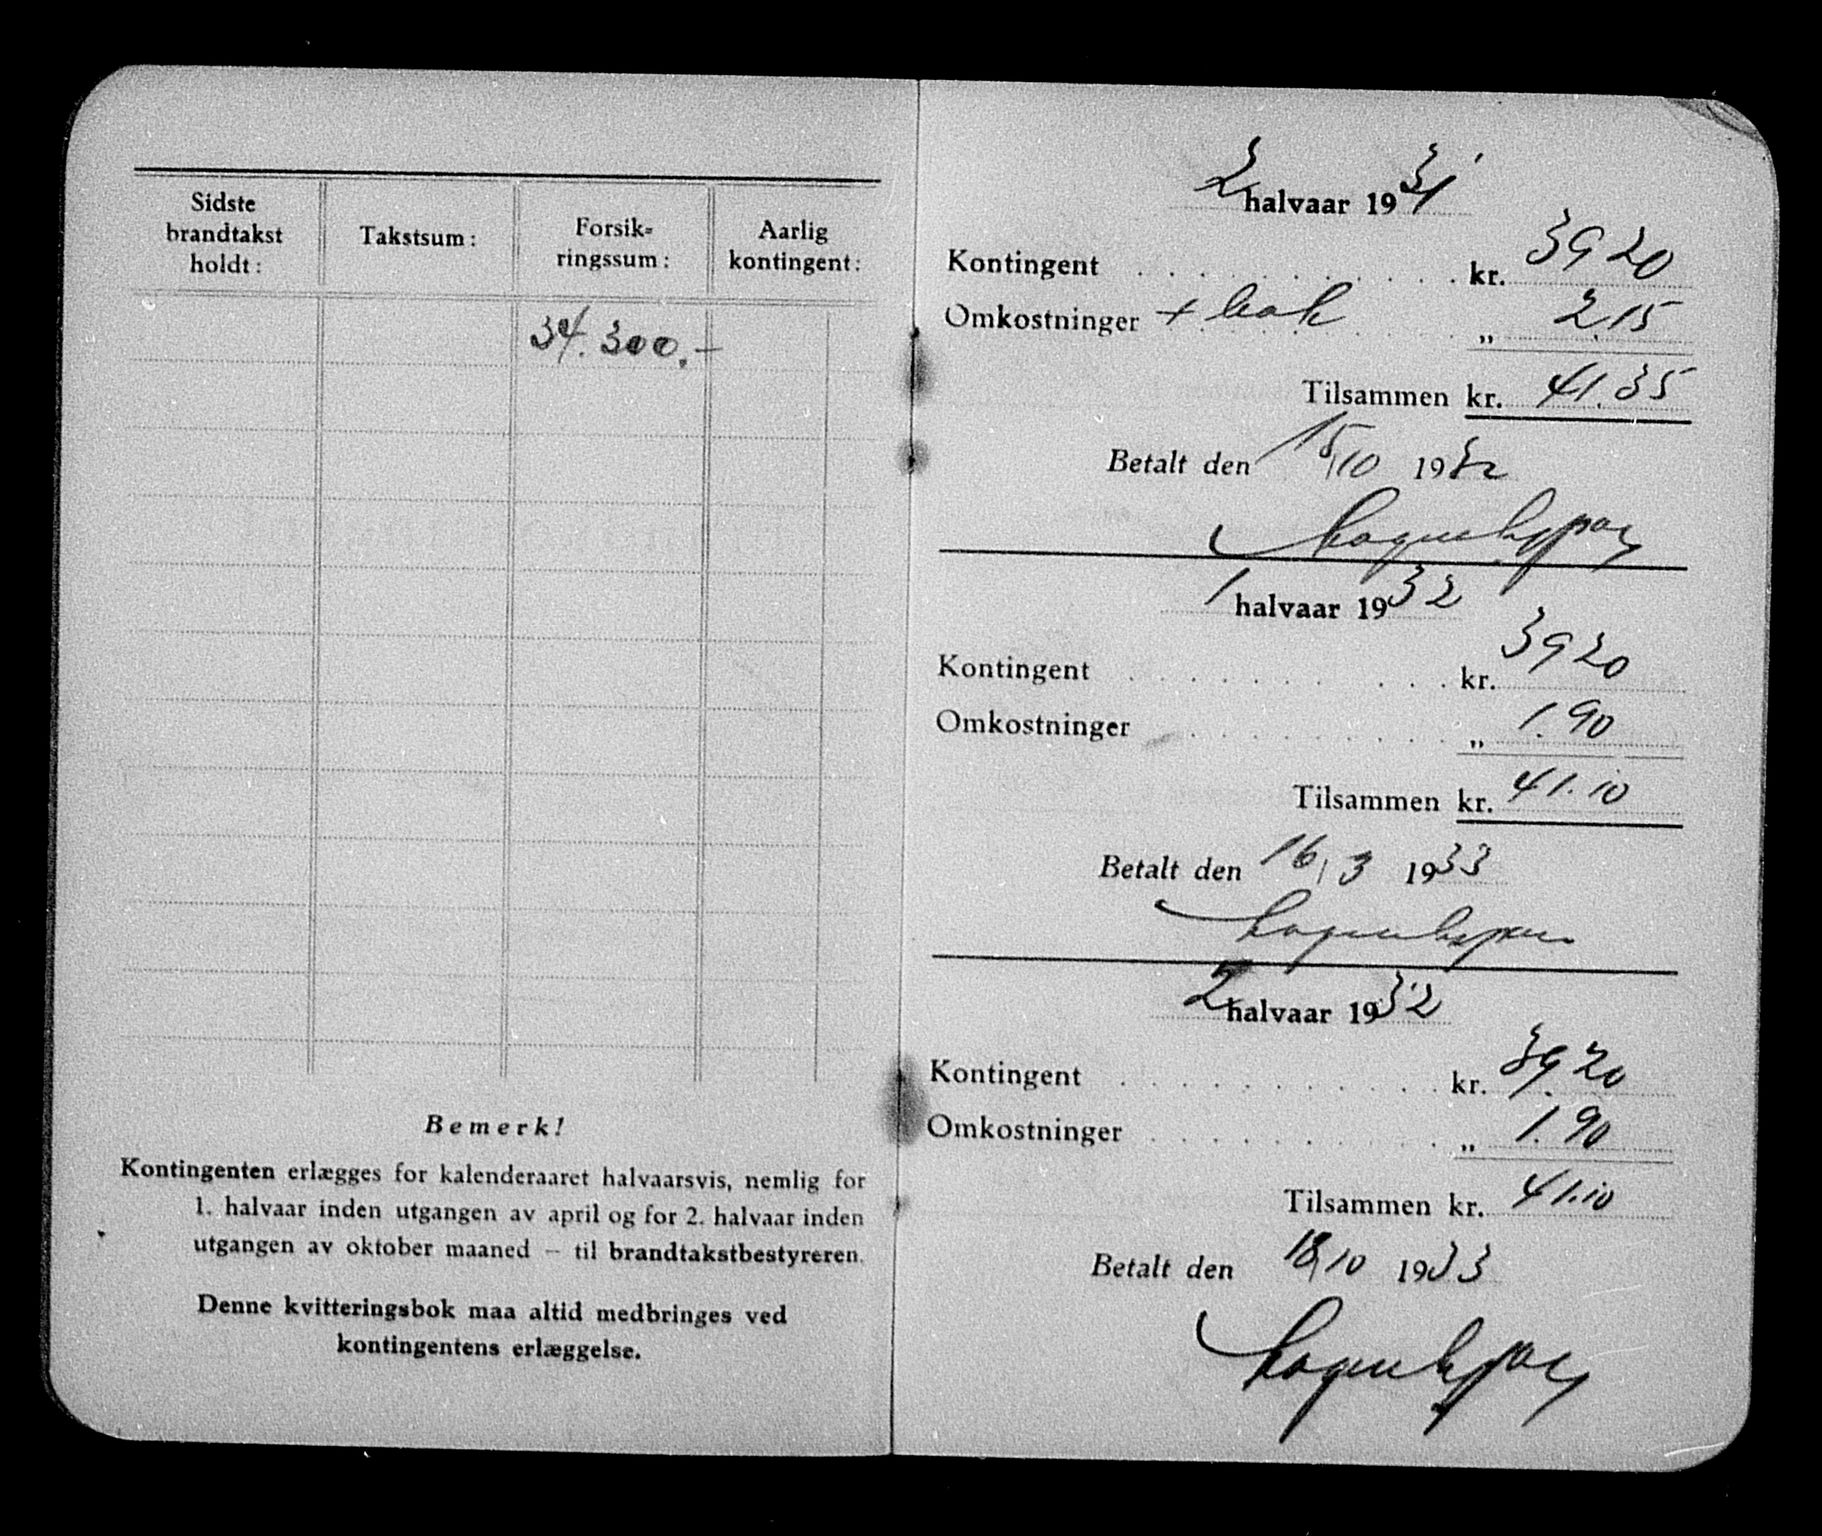 Sidste
brandtakst
holdt:
Takstsum:
Forsik=
ringssum:
Aarlig
kontingent:
34.300.-
Bemerk!
Kontingenten erlægges for kalenderaaret halvaarsvis, nemlig for
1. halvaar inden utgangen av april og for 2. halvaar inden
utgangen av oktober maaned – til brandtakstbestyreren.
Denne kvitteringsbok maa altid medbringes ved
kontingentens erlæggelse.
2 halvaar 1931
Kontingent kr. 39 20
Omkostninger + bok „ 2.15
Tilsammen kr. 41.35
Betalt den 15/10 1932
1 halvaar 1932
Kontingent kr. 39 20
Omkostninger „ 1.90
Tilsammen kr. 41.10
Betalt den 16/3 1933
2 halvaar 1932
Kontingent kr. 39.20
Omkostninger „ 1.90
Tilsammen kr. 41.10
Betalt den 18/10 1933